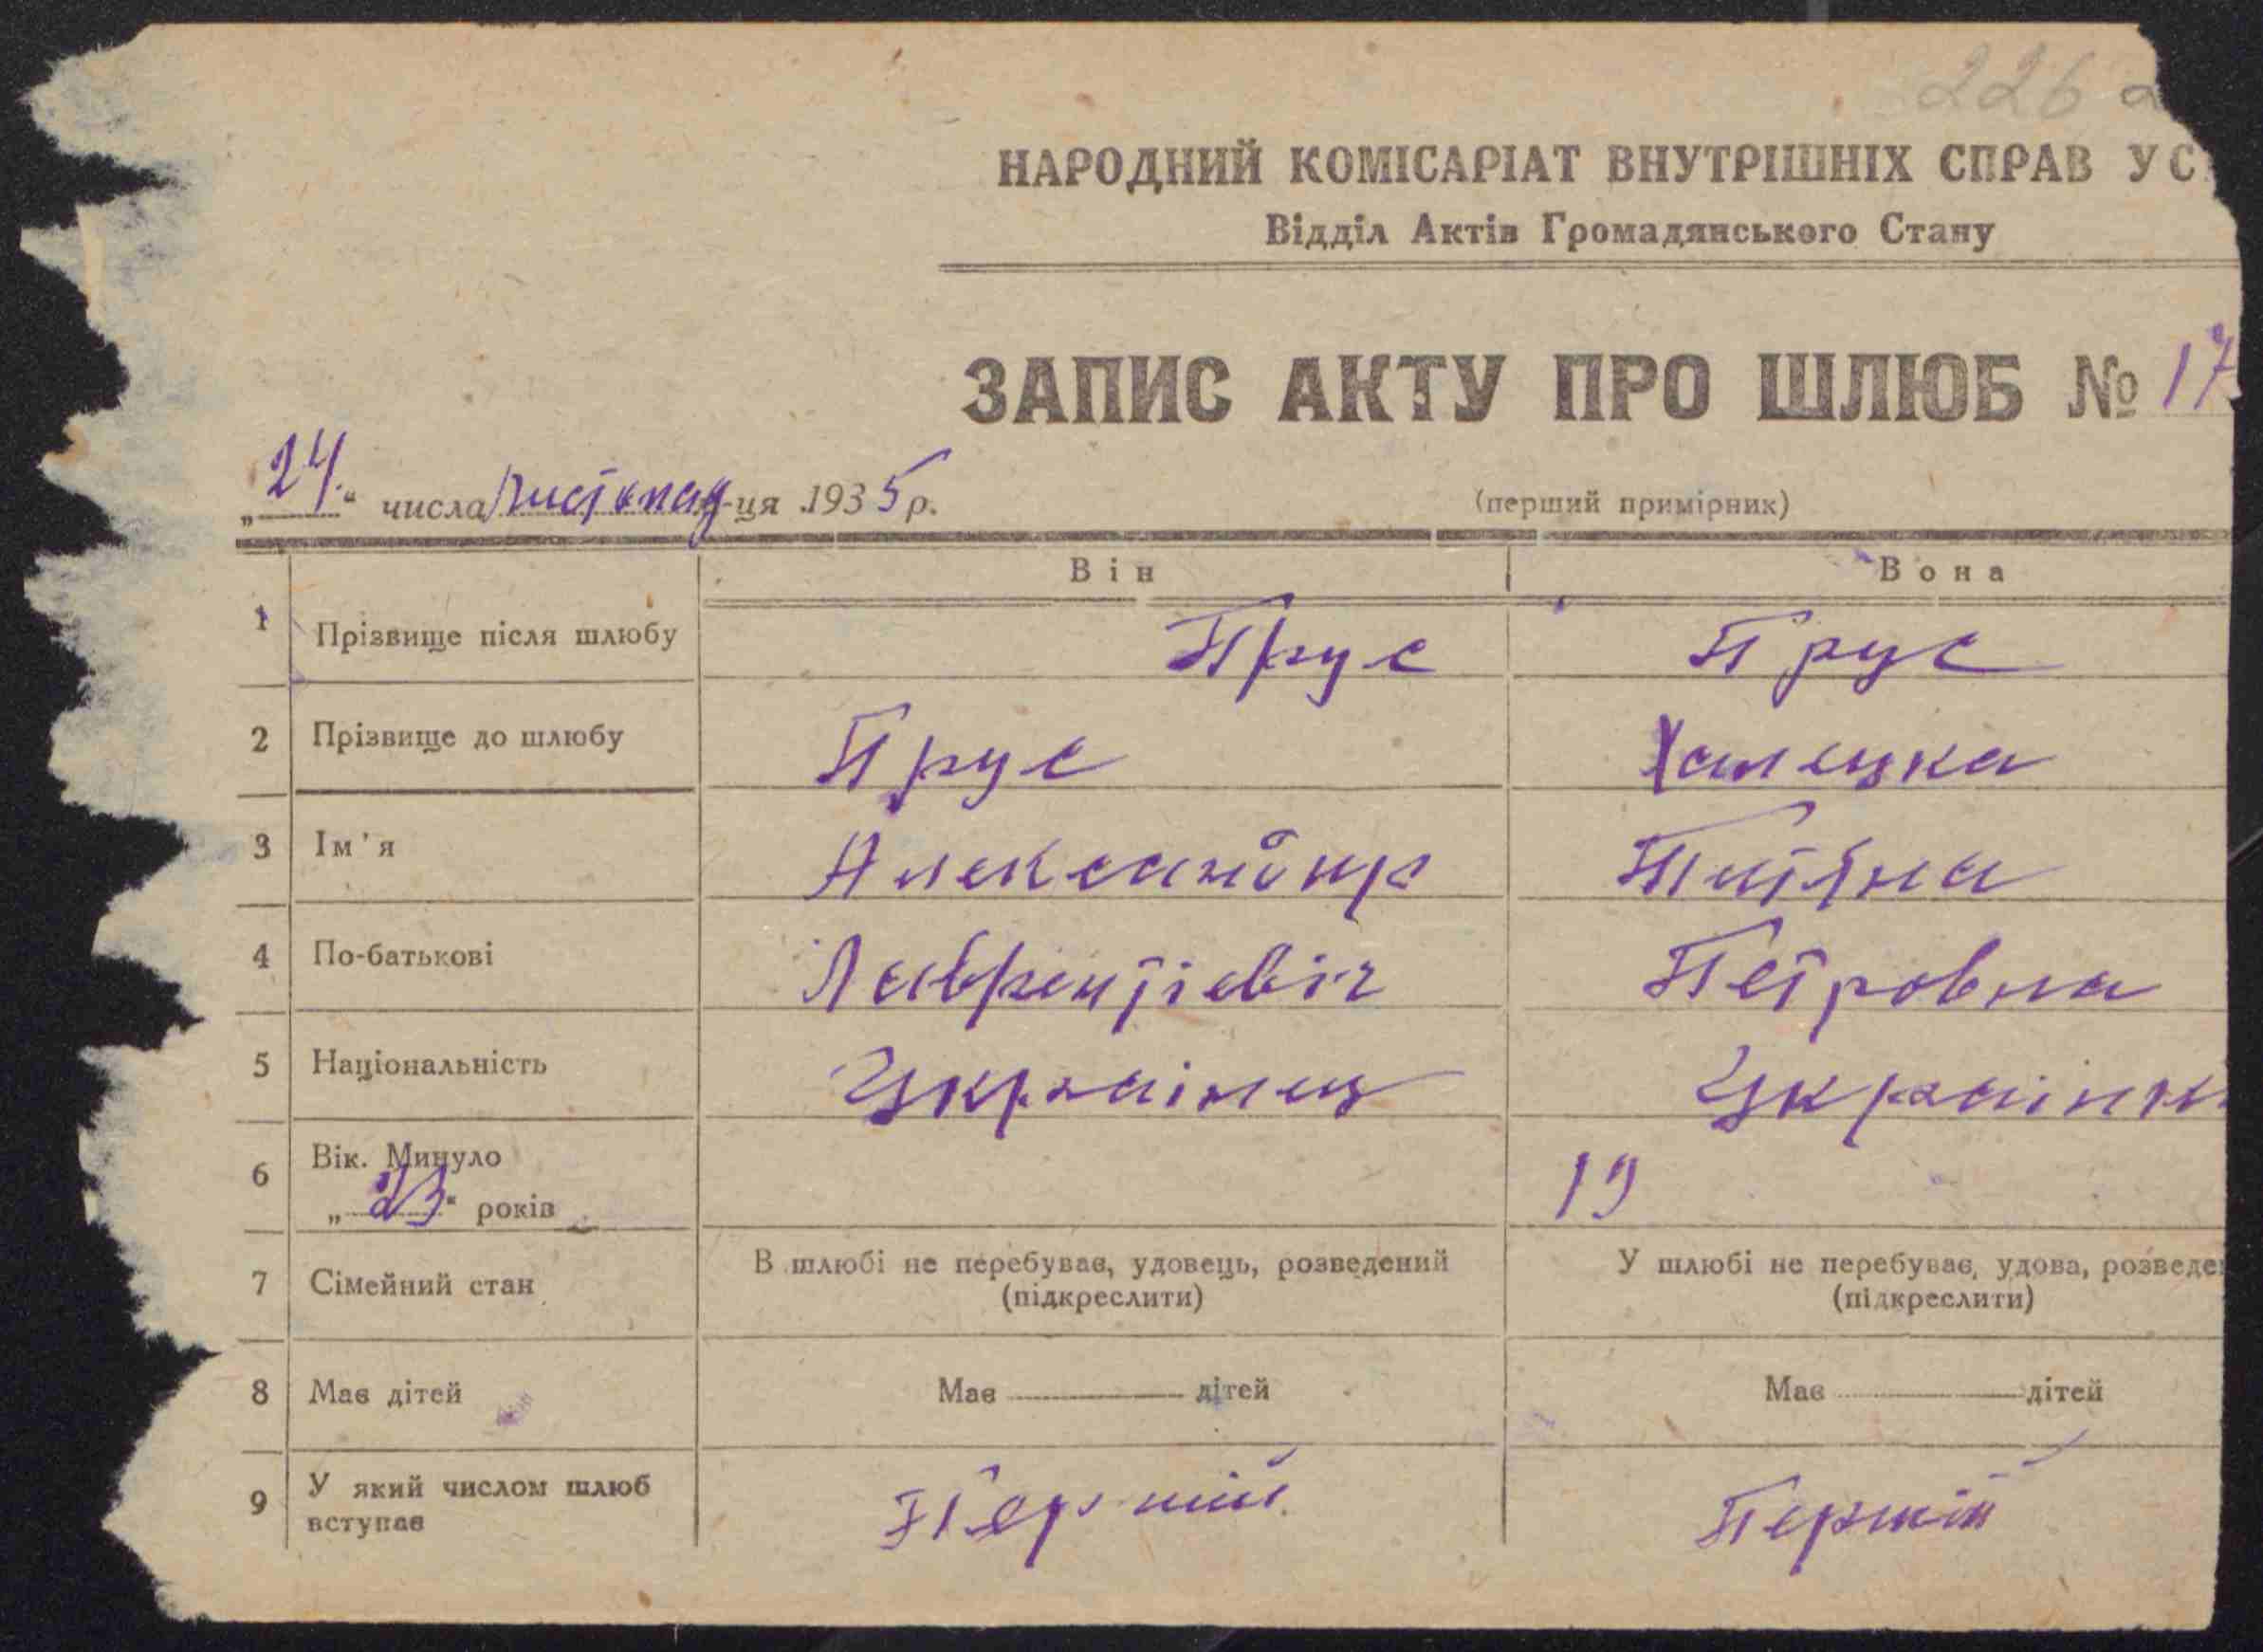 226 а
НАРОДНИЙ КОМІСАРІАТ ВНУТРІШНІХ СПРАВ УС
Відділ Актів Громадянського Стану
ЗАПИС АКТУ ПРО ШЛЮБ № 17
„24.“ числа листопад-ця 1935 р.
(перший примірник)
Він Вона
1 Прізвище після шлюбу Прус Прус
2 Прізвище до шлюбу Прус Халецка
3 Ім'я Александир Татяна
4 По-батькові Лаврентіевіч Петровна
5 Національність Украінец Украінк
6 Вік. Минуло
„23“ років 19
7 Сімейний стан В шлюбі не перебуває, удовець, розведений (підкреслити) У шлюбі не перебуває, удова, розведе (підкреслити)
8 Має дітей Має дітей Має дітей
9 У який числом шлюб вступає Першій Першій